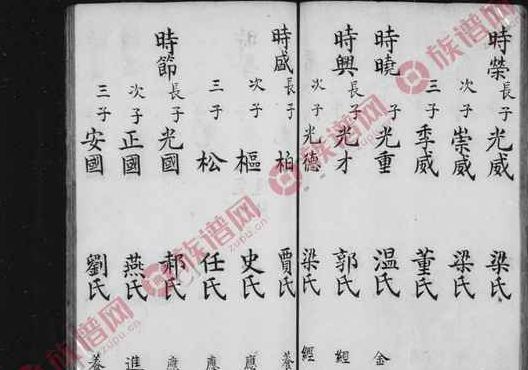 時榮 長子 光威 梁氏
次子 崇威 梁氏
三子 季威 董氏
時曉 子 光重 温氏 金
時興 長子 光才 郭氏
次子 光德 梁氏 經
時盛 長子 柏 賈氏 養
次子 樞 史氏 應
三子 松 任氏 應
時節 長子 光國 郝氏 應
次子 正國 燕氏 進
三子 安國 劉氏 養
族谱网
zupu.cn
族谱网
zupu.cn
族谱网